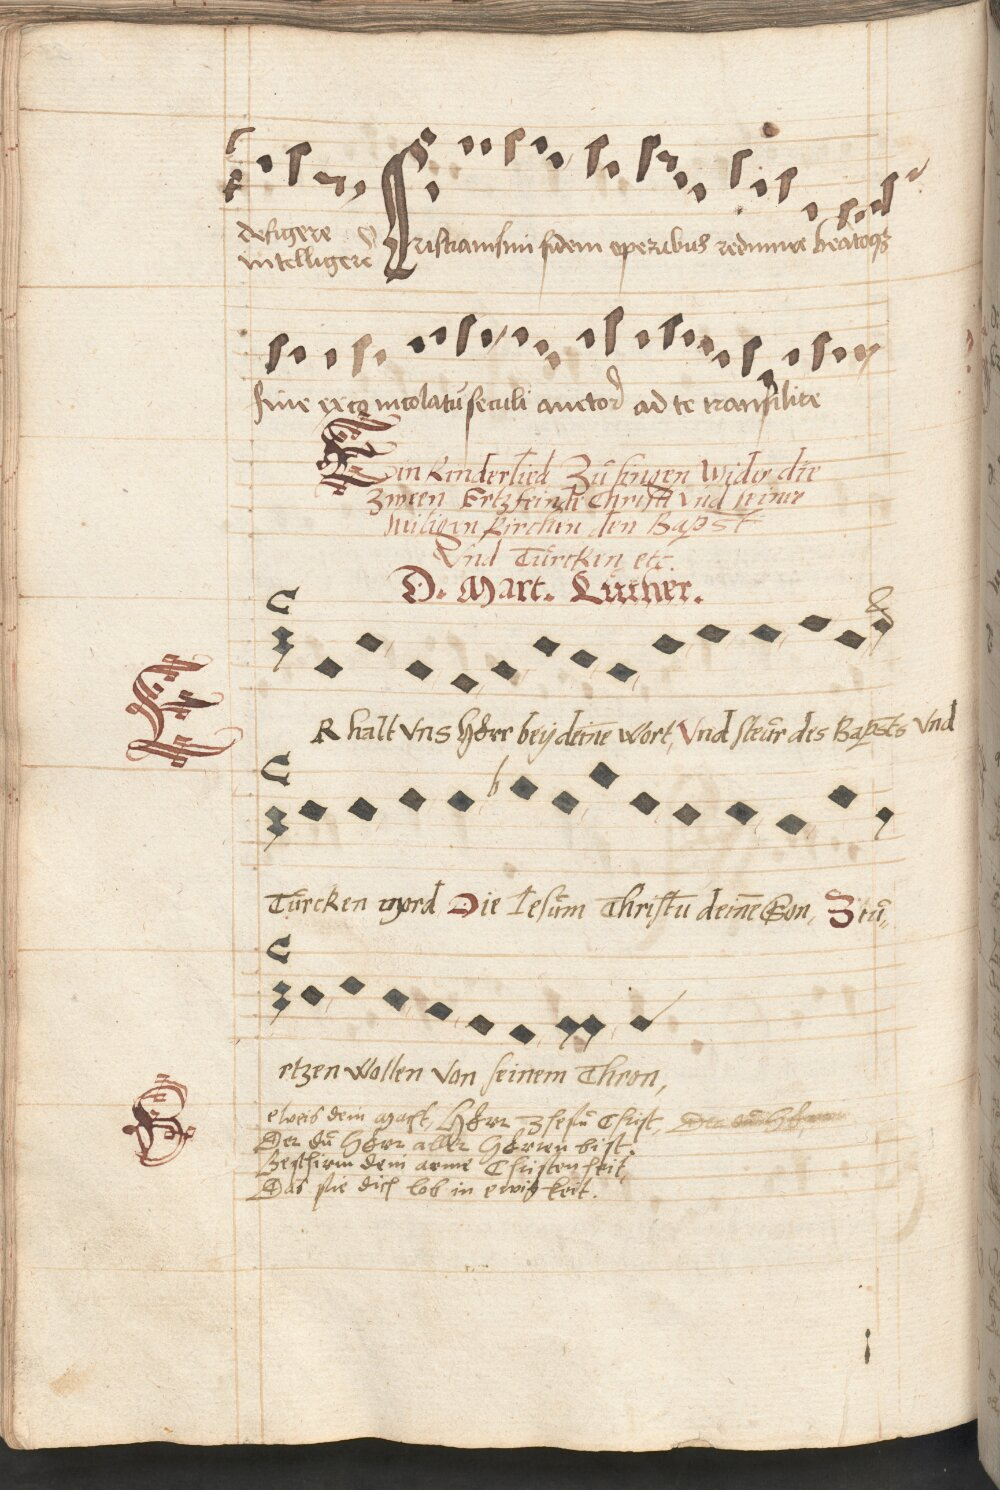 defigere
intelligere
Cristianismi fidem operibus redimire beatoqz
fine ex eo incolatu seculi auctor ad te transilire
Ein Kinderlied Zu singen Wider die
Zween Ertzfeinde Christi und seiner
heiligen Kirchen den Bapst
Und Türcken etc.
D. Mart. Luther.
ERhalt Uns Herr bey deine Wort, Und steur des Bapsts Und
Türcken mord Die Iesum Christu deine Son, Stü,,
rtzen Wollen Von seinem Thron,
Beweis dein macht, Herr Jhesu Christ,
Der du Herr aller Herren bist.
Beschirm dein arme Christenheit,
Das sie dich lob in ewigkeit.